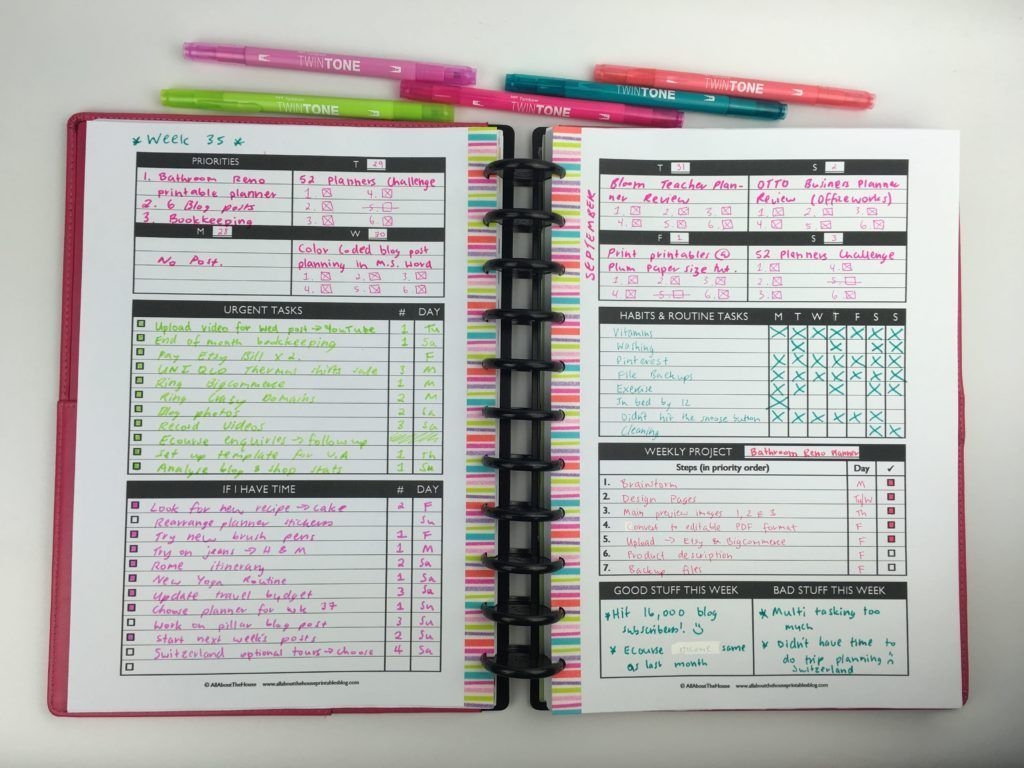 TWINTONE
TWINTONE
TWINTONE
TWINTONE
TWINTONE
* Week 35 *
PRIORITIES
1. Bathroom Reno
printable planner
2. 6 Blog posts
3. Bookkeeping
T 29
52 Planners Challenge
1. 4.
2. 5.
3. 6.
M 28
No Post.
W 30
Color Coded blog post
planning in M.S. Word
1. 2. 3.
4. 5. 6.
URGENT TASKS # DAY
Upload video for Wed post → YouTube 1 Tu
End of month bookkeeping 1 Sa
Pay Etsy Bill x 2. F
UNIQLO Thermal shirts sale 3 M
Ring Bigcommerce 1 M
Ring Crazy Domains 2 M
Blog photos 2 Sa
Record Videos 3 Sa
Ecourse enquiries → follow up
Set up template for V.A 1 Th
Analyse blog & shop stats 1 Su
IF I HAVE TIME # DAY
Look for new recipe → cake 2 F
Rearrange planner stickers Su
Try new brush pens 1 F
Try on jeans → H & M 1 M
Rome itinerary 2 Sa
New Yoga Routine 1 Sa
Update travel budget 3 Sa
Choose planner for wk 37 1 Su
Work on pillar blog post 3 Su
Start next week's posts 2 Su
Switzerland optional tours → choose 4 Sa
© AllAboutTheHouse www.allaboutthehouseprintablesblog.com
SEPTEMBER
T 31
Bloom Teacher Plan-
ner Review
1. 2. 3.
4. 5. 6.
S 2
OTTO Business Planner
Review (Officeworks)
1. 2. 3.
4. 5. 6.
F 1
Print printables @
Plum Paper size tut.
1. 2. 3.
4. 5. 6.
S 3
52 Planners Challenge
1. 4.
2. 5.
3. 6.
HABITS & ROUTINE TASKS M T W T F S S
Vitamins
Washing
Pinterest
File Backups
Exercise
In bed by 12
Didn't hit the snooze button
Cleaning
WEEKLY PROJECT Bathroom Reno Planner
Steps (in priority order) Day ✓
1. Brainstorm M
2. Design Pages Tu/W
3. Main preview images 1, 2 & 3 Th
4. Convert to editable PDF format F
5. Upload → Etsy & BigCommerce F
6. Product description F
7. Backup files F
GOOD STUFF THIS WEEK
* Hit 16,000 blog
subscribers! ☺
* Ecourse same
as last month
BAD STUFF THIS WEEK
* Multi tasking too
much
* Didn't have time to
do trip planning
Switzerland
© AllAboutTheHouse www.allaboutthehouseprintablesblog.com